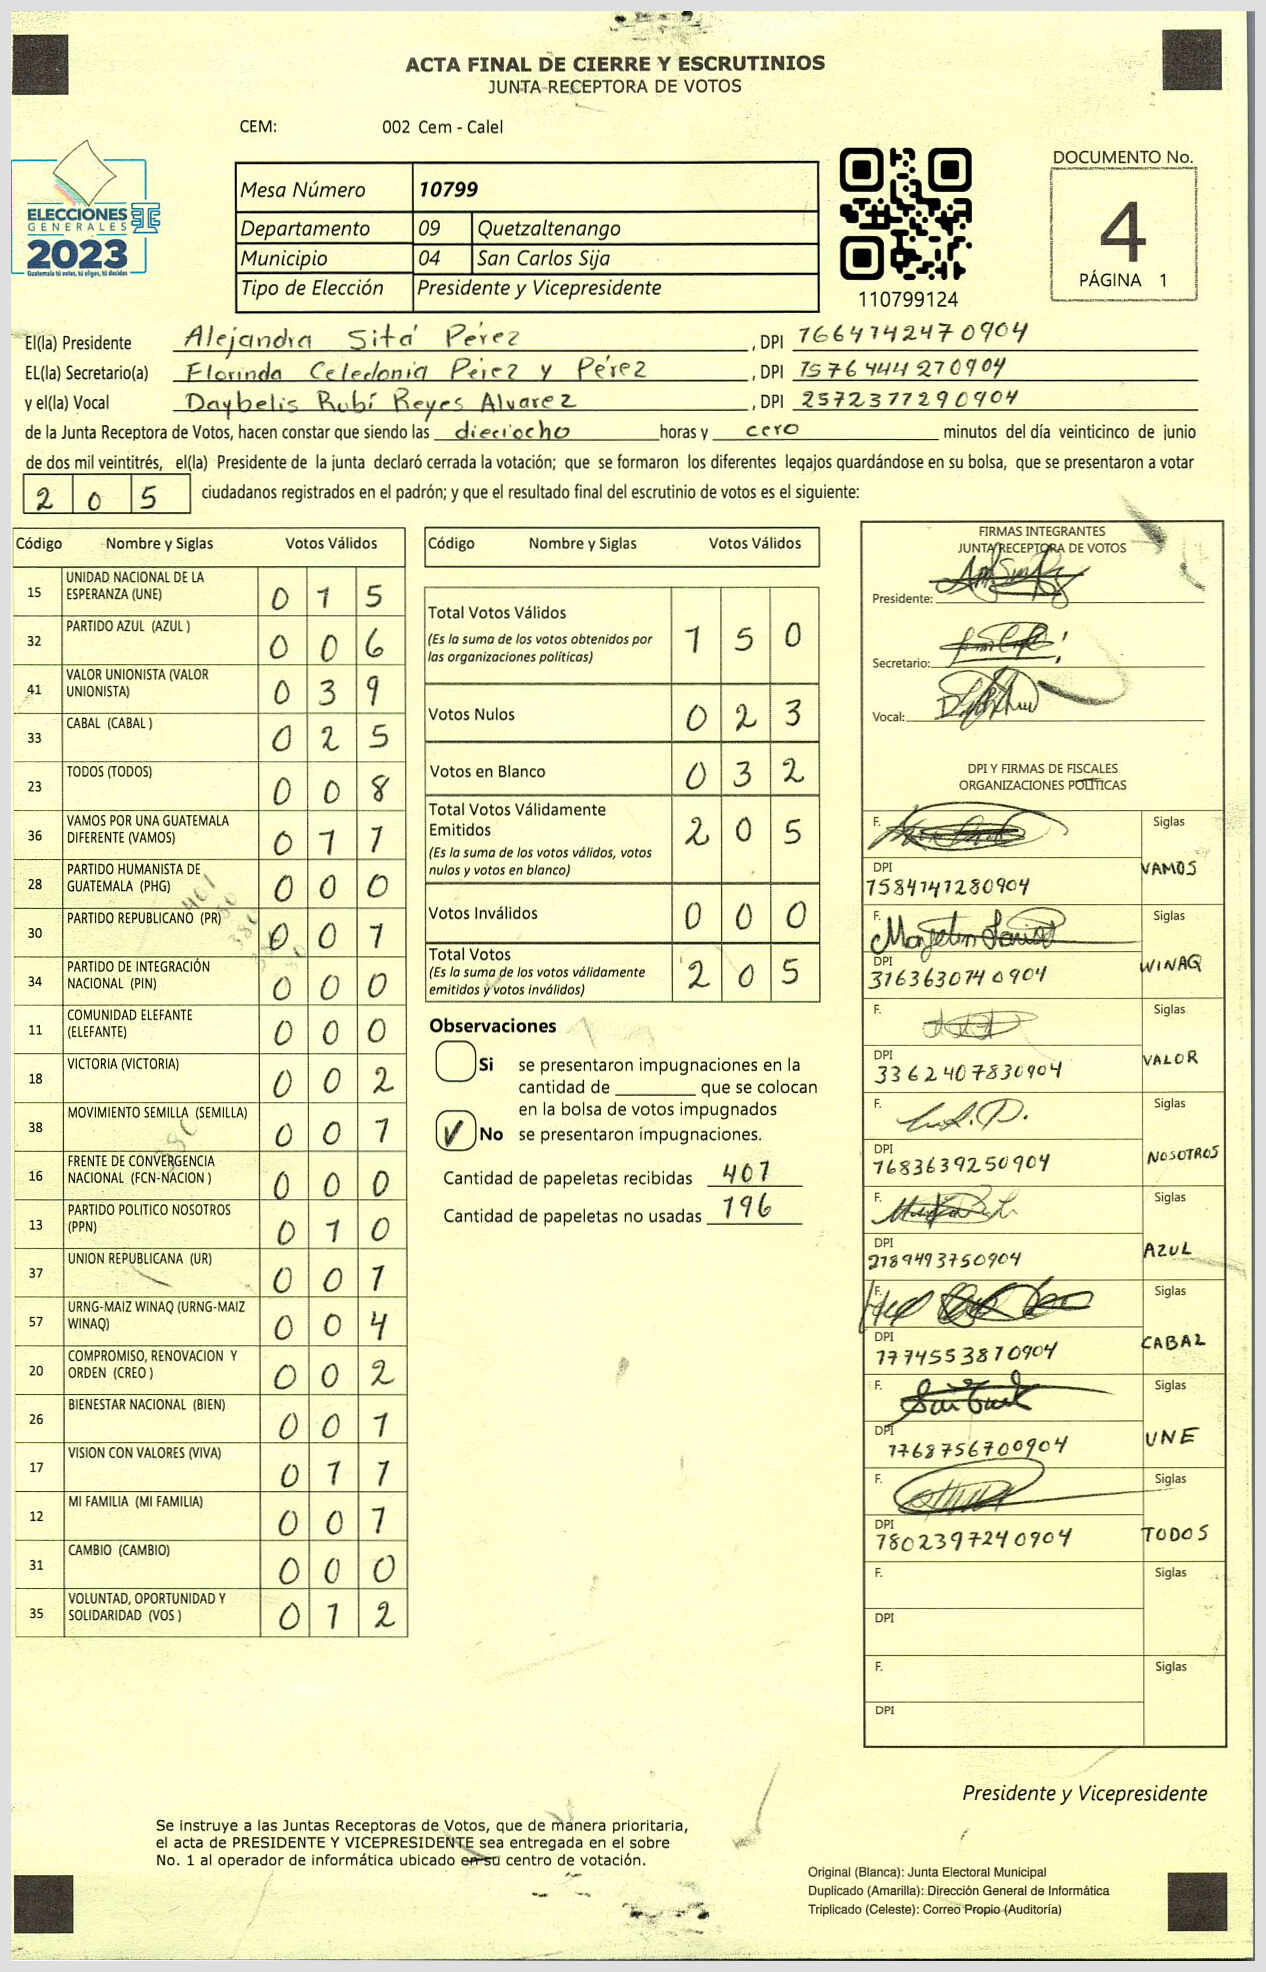 ACTA FINAL DE CIERRE Y ESCRUTINIOS
JUNTA RECEPTORA DE VOTOS
CEM: 002 Cem - Calel
ELECCIONES
GENERALES
2023
Guatemala tú votas, tú eliges, tú decides
Mesa Número 10799
Departamento 09 Quetzaltenango
Municipio 04 San Carlos Sija
Tipo de Elección Presidente y Vicepresidente
110799124
DOCUMENTO No.
4
PÁGINA 1
El(la) Presidente Alejandra Sitá Pérez, DPI 1664142470904
EL(la) Secretario(a) Florinda Celedonia Pérez y Pérez, DPI 1576444270904
y el(la) Vocal Daybelis Rubí Reyes Alvarez, DPI 2572377290904
de la Junta Receptora de Votos, hacen constar que siendo las dieciocho horas y cero minutos del día veinticinco de junio
de dos mil veintitrés, el(la) Presidente de la junta declaró cerrada la votación; que se formaron los diferentes legajos guardándose en su bolsa, que se presentaron a votar
205 ciudadanos registrados en el padrón; y que el resultado final del escrutinio de votos es el siguiente:
Código Nombre y Siglas Votos Válidos
15 UNIDAD NACIONAL DE LA ESPERANZA (UNE) 015
32 PARTIDO AZUL (AZUL ) 006
41 VALOR UNIONISTA (VALOR UNIONISTA) 039
33 CABAL (CABAL ) 025
23 TODOS (TODOS) 008
36 VAMOS POR UNA GUATEMALA DIFERENTE (VAMOS) 011
28 PARTIDO HUMANISTA DE GUATEMALA (PHG) 000
30 PARTIDO REPUBLICANO (PR) 001
34 PARTIDO DE INTEGRACIÓN NACIONAL (PIN) 000
11 COMUNIDAD ELEFANTE (ELEFANTE) 000
18 VICTORIA (VICTORIA) 002
38 MOVIMIENTO SEMILLA (SEMILLA) 001
16 FRENTE DE CONVERGENCIA NACIONAL (FCN-NACION ) 000
13 PARTIDO POLITICO NOSOTROS (PPN) 010
37 UNION REPUBLICANA (UR) 001
57 URNG-MAIZ WINAQ (URNG-MAIZ WINAQ) 004
20 COMPROMISO, RENOVACION Y ORDEN (CREO ) 002
26 BIENESTAR NACIONAL (BIEN) 001
17 VISION CON VALORES (VIVA) 011
12 MI FAMILIA (MI FAMILIA) 001
31 CAMBIO (CAMBIO) 000
35 VOLUNTAD, OPORTUNIDAD Y SOLIDARIDAD (VOS ) 012
Código Nombre y Siglas Votos Válidos
Total Votos Válidos 150
(Es la suma de los votos obtenidos por
las organizaciones políticas)
Votos Nulos 023
Votos en Blanco 032
Total Votos Válidamente
Emitidos 205
(Es la suma de los votos válidos, votos
nulos y votos en blanco)
Votos Inválidos 000
Total Votos 205
(Es la suma de los votos válidamente
emitidos y votos inválidos)
Observaciones
Si se presentaron impugnaciones en la
cantidad de ________ que se colocan
en la bolsa de votos impugnados
✓ No se presentaron impugnaciones.
Cantidad de papeletas recibidas 401
Cantidad de papeletas no usadas 196
FIRMAS INTEGRANTES
JUNTA RECEPTORA DE VOTOS
Presidente:
Secretario:
Vocal:
DPI Y FIRMAS DE FISCALES
ORGANIZACIONES POLÍTICAS
F. Siglas
DPI VAMOS
1584141280904
F. Siglas
DPI WINAQ
3163630740904
F. Siglas
DPI VALOR
3362407830904
F. Siglas
DPI NOSOTROS
1683639250904
F. Siglas
DPI AZUL
2189493750904
F. Siglas
DPI CABAL
1774553870904
F. Siglas
DPI UNE
1768756700904
F. Siglas
DPI TODOS
1802397240904
F. Siglas
DPI
F. Siglas
DPI
Presidente y Vicepresidente
Se instruye a las Juntas Receptoras de Votos, que de manera prioritaria,
el acta de PRESIDENTE Y VICEPRESIDENTE sea entregada en el sobre
No. 1 al operador de informática ubicado en su centro de votación.
Original (Blanca): Junta Electoral Municipal
Duplicado (Amarilla): Dirección General de Informática
Triplicado (Celeste): Correo Propio (Auditoría)